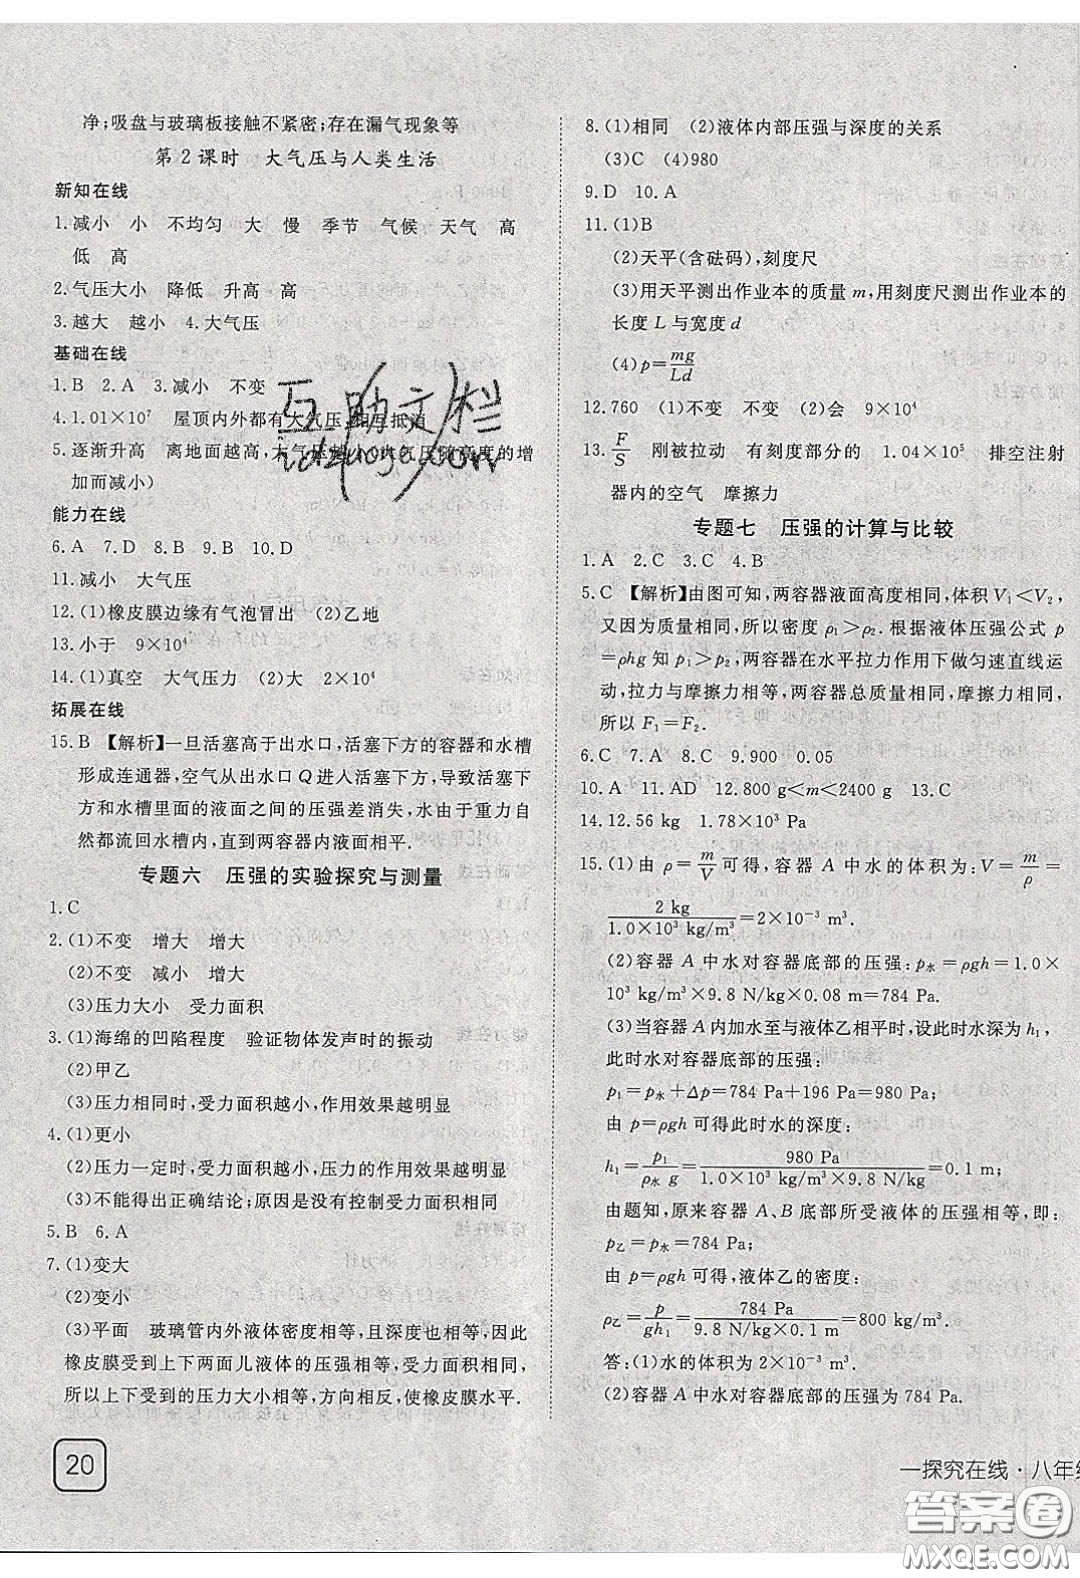 净;吸盘与玻璃板接触不紧密;存在漏气现象等
第2课时 大气压与人类生活
新知在线
1.减小 小 不均匀 大 慢 季节 气候 天气 高
低 高
2.气压大小 降低 升高 高
3.越大 越小 4.大气压
基础在线
1.B 2.A 3.减小 不变
4.1.01×10⁷ 屋顶内外都有大气压,相互抵消
5.逐渐升高 离地面越高,大气压越小(大气压随高度的增
加而减小)
能力在线
6.A 7.D 8.B 9.B 10.D
11.减小 大气压
12.(1)橡皮膜边缘有气泡冒出 (2)乙地
13.小于 9×10⁴
14.(1)真空 大气压力 (2)大 2×10⁴
拓展在线
15.B 【解析】一旦活塞高于出水口,活塞下方的容器和水槽
形成连通器,空气从出水口Q进入活塞下方,导致活塞下
方和水槽里面的液面之间的压强差消失,水由于重力自
然都流回水槽内,直到两容器内液面相平.
专题六 压强的实验探究与测量
1.C
2.(1)不变 增大 增大
(2)不变 减小 增大
(3)压力大小 受力面积
3.(1)海绵的凹陷程度 验证物体发声时的振动
(2)甲乙
(3)压力相同时,受力面积越小,作用效果越明显
4.(1)更小
(2)压力一定时,受力面积越小,压力的作用效果越明显
(3)不能得出正确结论;原因是没有控制受力面积相同
5.B 6.A
7.(1)变大
(2)变小
(3)平面 玻璃管内外液体密度相等,且深度也相等,因此
橡皮膜受到上下两面儿液体的压强相等,受力面积相同,
所以上下受到的压力大小相等,方向相反,使橡皮膜水平.
20
8.(1)相同 (2)液体内部压强与深度的关系
(3)C (4)980
9.D 10.A
11.(1)B
(2)天平(含砝码),刻度尺
(3)用天平测出作业本的质量m,用刻度尺测出作业本的
长度L与宽度d
(4)p=mg/Ld
12.760 (1)不变 不变 (2)会 9×10⁴
13.F/S 刚被拉动 有刻度部分的 1.04×10⁵ 排空注射
器内的空气 摩擦力
专题七 压强的计算与比较
1.A 2.C 3.C 4.B
5.C 【解析】由图可知,两容器液面高度相同,体积V₁<V₂,
又因为质量相同,所以密度ρ₁>ρ₂.根据液体压强公式p
=ρhg知p₁>p₂,两容器在水平拉力作用下做匀速直线运
动,拉力与摩擦力相等,两容器总质量相同,摩擦力相同,
所以F₁=F₂.
6.C 7.A 8.C 9.900 0.05
10.A 11.AD 12.800 g<m<2400 g 13.C
14.12.56 kg 1.78×10³ Pa
15.(1)由ρ=m/V可得,容器A中水的体积为:V=m/ρ=
2 kg/1.0×10³ kg/m³=2×10⁻³ m³.
(2)容器A中水对容器底部的压强:p水=ρgh=1.0×
10³ kg/m³×9.8 N/kg×0.08 m=784 Pa.
(3)当容器A内加水至与液体乙相平时,设此时水深为h₁,
此时水对容器底部的压强:
p₁=p水+Δp=784 Pa+196 Pa=980 Pa,
由p=ρgh可得此时水的深度:
h₁=p₁/ρ水g=980 Pa/1.0×10³ kg/m³×9.8 N/kg=0.1 m;
由题知,原来容器A、B底部所受液体的压强相等,即:
p乙=p水=784 Pa;
由p=ρgh可得,液体乙的密度:
ρ乙=p/gh₁=784 Pa/9.8 N/kg×0.1 m=800 kg/m³.
答:(1)水的体积为2×10⁻³ m³.
(2)容器A中水对容器底部的压强为784 Pa.
一探究在线·八年级
答案圈
MXQE.COM
互助文档